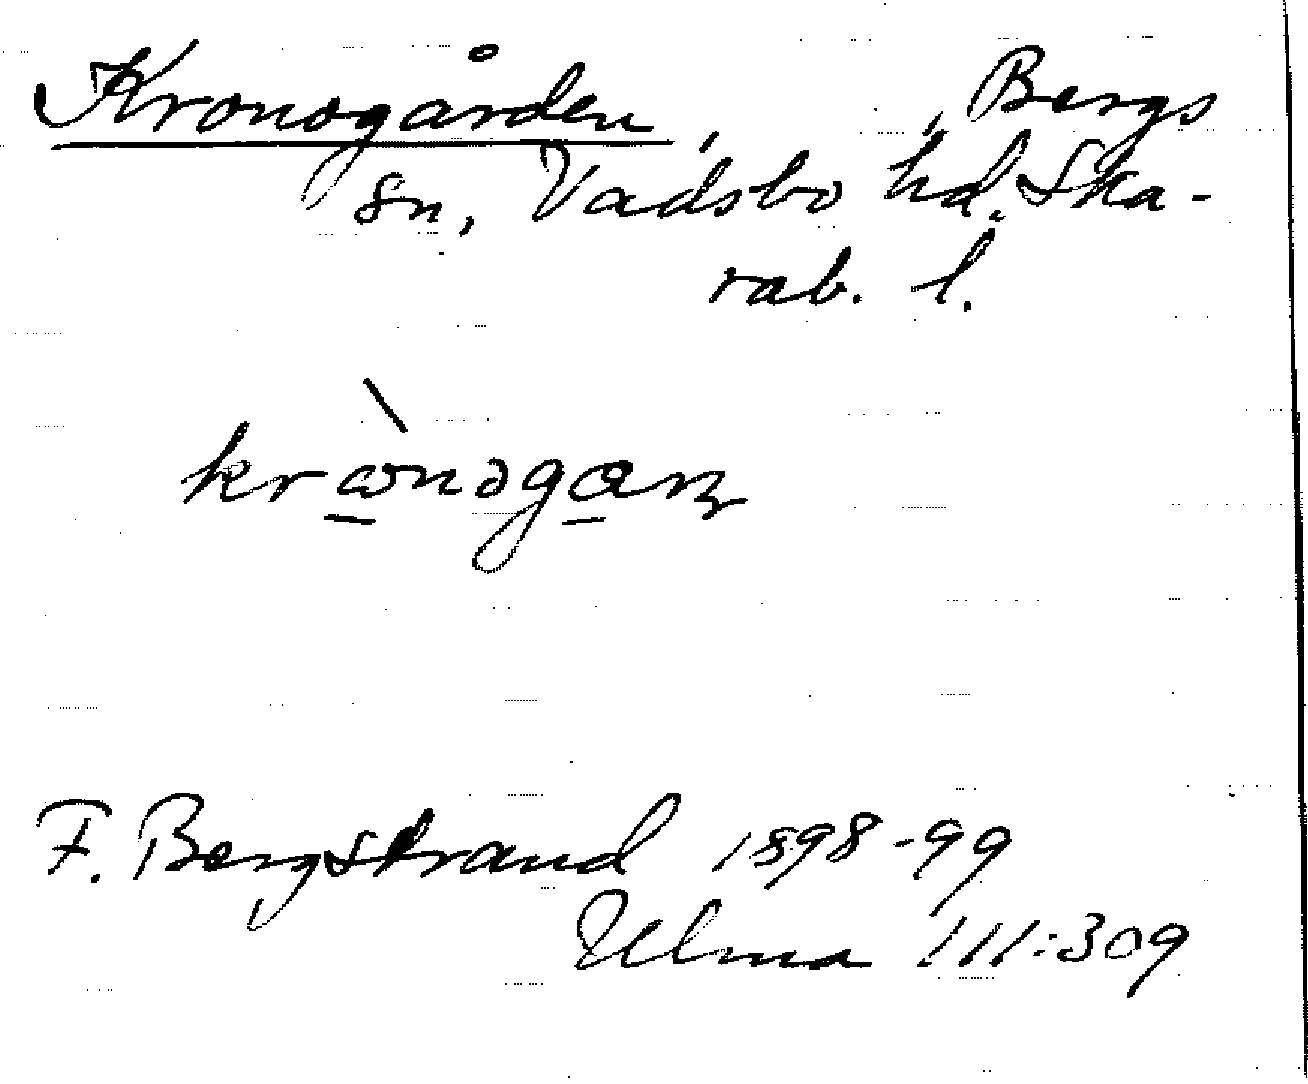 Kronogården, , Bergs
sn, Vadsbo hd. Ska-
rab. l.
krònəgaɳ
F. Bergstrand 1898-99
Ulma 111:309